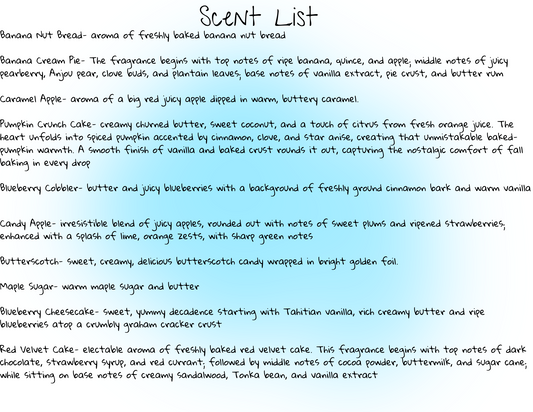 Scent List
Banana Nut Bread- aroma of freshly baked banana nut bread
Banana Cream Pie- The fragrance begins with top notes of ripe banana, quince, and apple; middle notes of juicy
pearberry, Anjou pear, clove buds, and plantain leaves; base notes of vanilla extract, pie crust, and butter rum
Caramel Apple- aroma of a big red juicy apple dipped in warm, buttery caramel.
Pumpkin Crunch Cake- creamy churned butter, sweet coconut, and a touch of citrus from fresh orange juice. The
heart unfolds into spiced pumpkin accented by cinnamon, clove, and star anise, creating that unmistakable baked-
pumpkin warmth. A smooth finish of vanilla and baked crust rounds it out, capturing the nostalgic comfort of fall
baking in every drop
Blueberry Cobbler- butter and juicy blueberries with a background of freshly ground cinnamon bark and warm vanilla
Candy Apple- irresistible blend of juicy apples, rounded out with notes of sweet plums and ripened strawberries;
enhanced with a splash of lime, orange zests, with sharp green notes
Butterscotch- sweet, creamy, delicious butterscotch candy wrapped in bright golden foil.
Maple Sugar- warm maple sugar and butter
Blueberry Cheesecake- sweet, yummy decadence starting with Tahitian vanilla, rich creamy butter and ripe
blueberries atop a crumbly graham cracker crust
Red Velvet Cake- electable aroma of freshly baked red velvet cake. This fragrance begins with top notes of dark
chocolate, strawberry syrup, and red currant; followed by middle notes of cocoa powder, buttermilk, and sugar cane;
while sitting on base notes of creamy sandalwood, Tonka bean, and vanilla extract